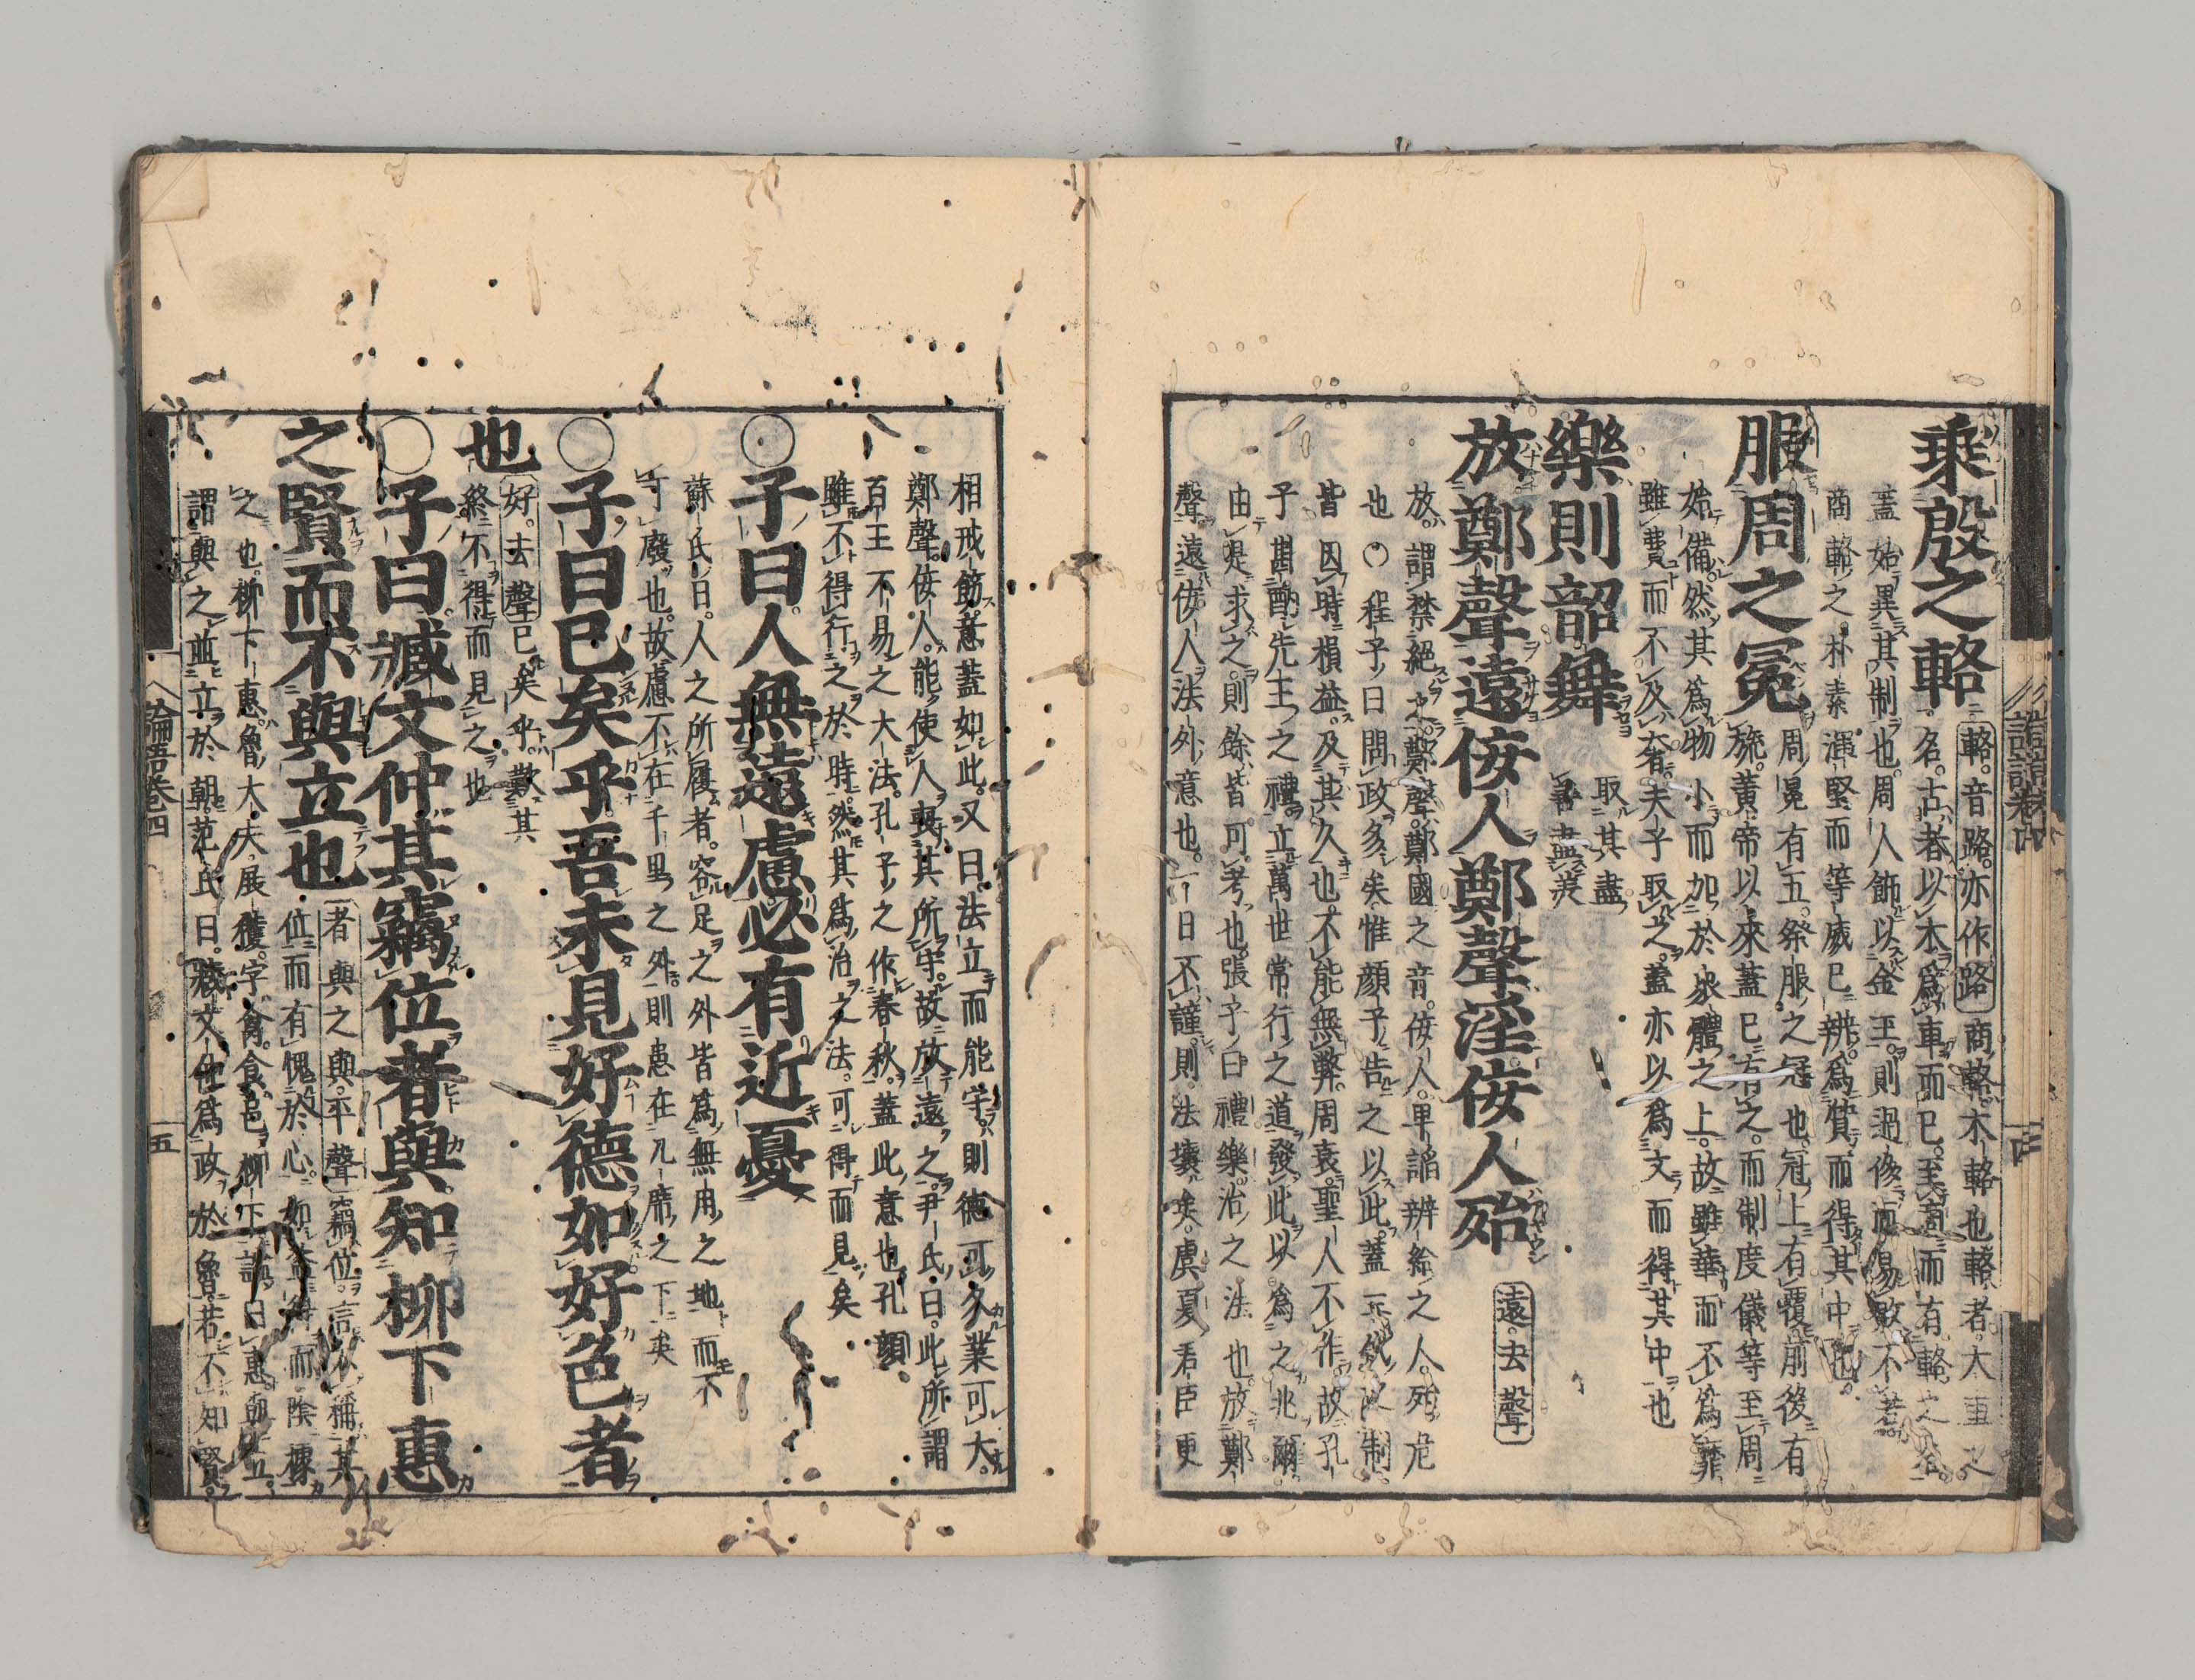 乘殷之輅
輅音路亦作路
商輅木輅也輅者大車之
名古者以木爲車而已至商而有輅之名
蓋始異其制也周人飾以金玉則過侈而易敗不若
商輅之朴素渾堅而等威已辨爲質而得其中也
服周之冕
周冕有五祭服之冠也冠上有覆前後有
旒黃帝以來蓋已有之而制度儀等至周
始備然其爲物小而加於衆體之上故雖華而不爲靡
雖費而不及奢夫子取之蓋亦以爲文而得其中也
樂則韶舞
取其盡
善盡美
放鄭聲遠佞人鄭聲淫佞人殆
遠去聲
放謂禁絕之鄭聲鄭國之音佞人卑諂辨給之人殆危
也○程子曰問政多矣惟顔子告之以此蓋三代之制
皆因時損益及其久也不能無弊周衰聖人不作故孔
子斟酌先王之禮立萬世常行之道發此以爲之兆爾
由是求之則餘皆可考也張子曰禮樂治之法也放鄭
聲遠佞人法外意也一日不謹則法壞矣虞夏君臣更
論語卷四
四
相戒飭意蓋如此又曰法立而能守則德可久業可大
鄭聲佞人能使人喪其所守故放遠之尹氏曰此所謂
百王不易之大法孔子之作春秋蓋此意也孔顔
雖不得行之於時然其爲治之法可得而見矣
○子曰人無遠慮必有近憂
蘇氏曰人之所履者容足之外皆爲無用之地而不
可廢也故慮不在千里之外則患在几席之下矣
○子曰已矣乎吾未見好德如好色者
也
好去聲已矣乎歎其
終不得而見之也
○子曰臧文仲其竊位者與知柳下惠
之賢而不與立也
者與之與平聲竊位言不稱其
位而有愧於心如盜得而陰據
之也柳下惠魯大夫展獲字禽食邑柳下謚曰惠與立
謂與之並立於朝范氏曰臧文仲爲政於魯若不知賢
論語卷四
五